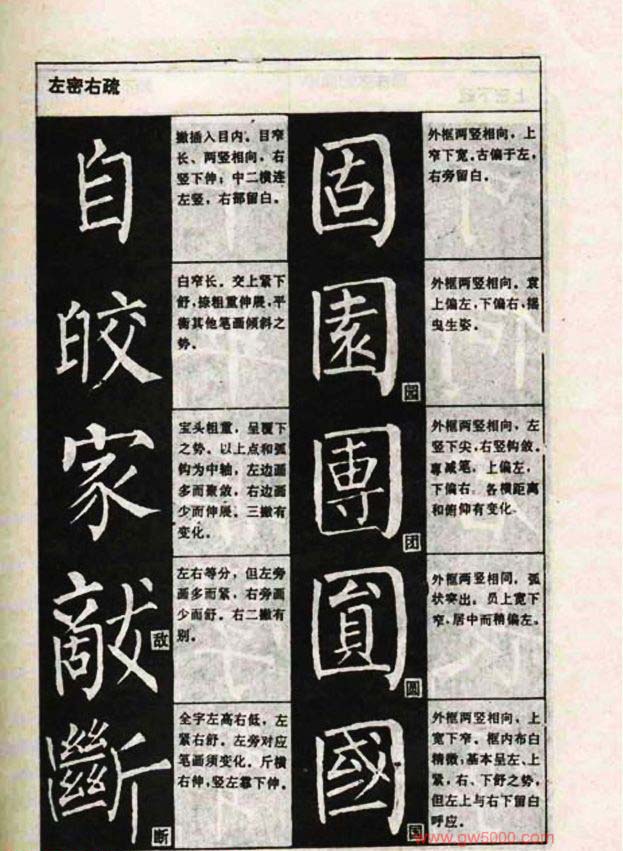 左密右疏
自
撇插入目内。目窄
长、两竖相向，右
竖下伸；中二横连
左竖，右部留白。
皎
白窄长。交上紧下
舒，捺粗重伸展，平
衡其他笔画倾斜之
势。
家
宝头粗重，呈覆下
之势。以上点和弧
钩为中轴，左边画
多而聚敛，右边画
少而伸展。三撇有
变化。
敵
敌
左右等分，但左旁
画多而紧，右旁画
少而舒。右二撇有
别。
斷
断
全字左高右低，左
紧右舒。左旁对应
笔画须变化。斤横
右伸，竖左靠下伸。
固
外框两竖相向，上
窄下宽。古偏于左，
右旁留白。
園
园
外框两竖相向。袁
上偏左，下偏右，摇
曳生姿。
團
团
外框两竖相向，左
竖下尖，右竖钩敛。
專减笔，上偏左，
下偏右。各横距离
和俯仰有变化。
圓
圆
外框两竖相同，弧
状突出。员上宽下
窄，居中而稍偏左。
國
国
外框两竖相向，上
宽下窄。框内布白
精微，基本呈左、上
紧，右、下舒之势，
但左上与右下留白
呼应。
www.gw5000.com